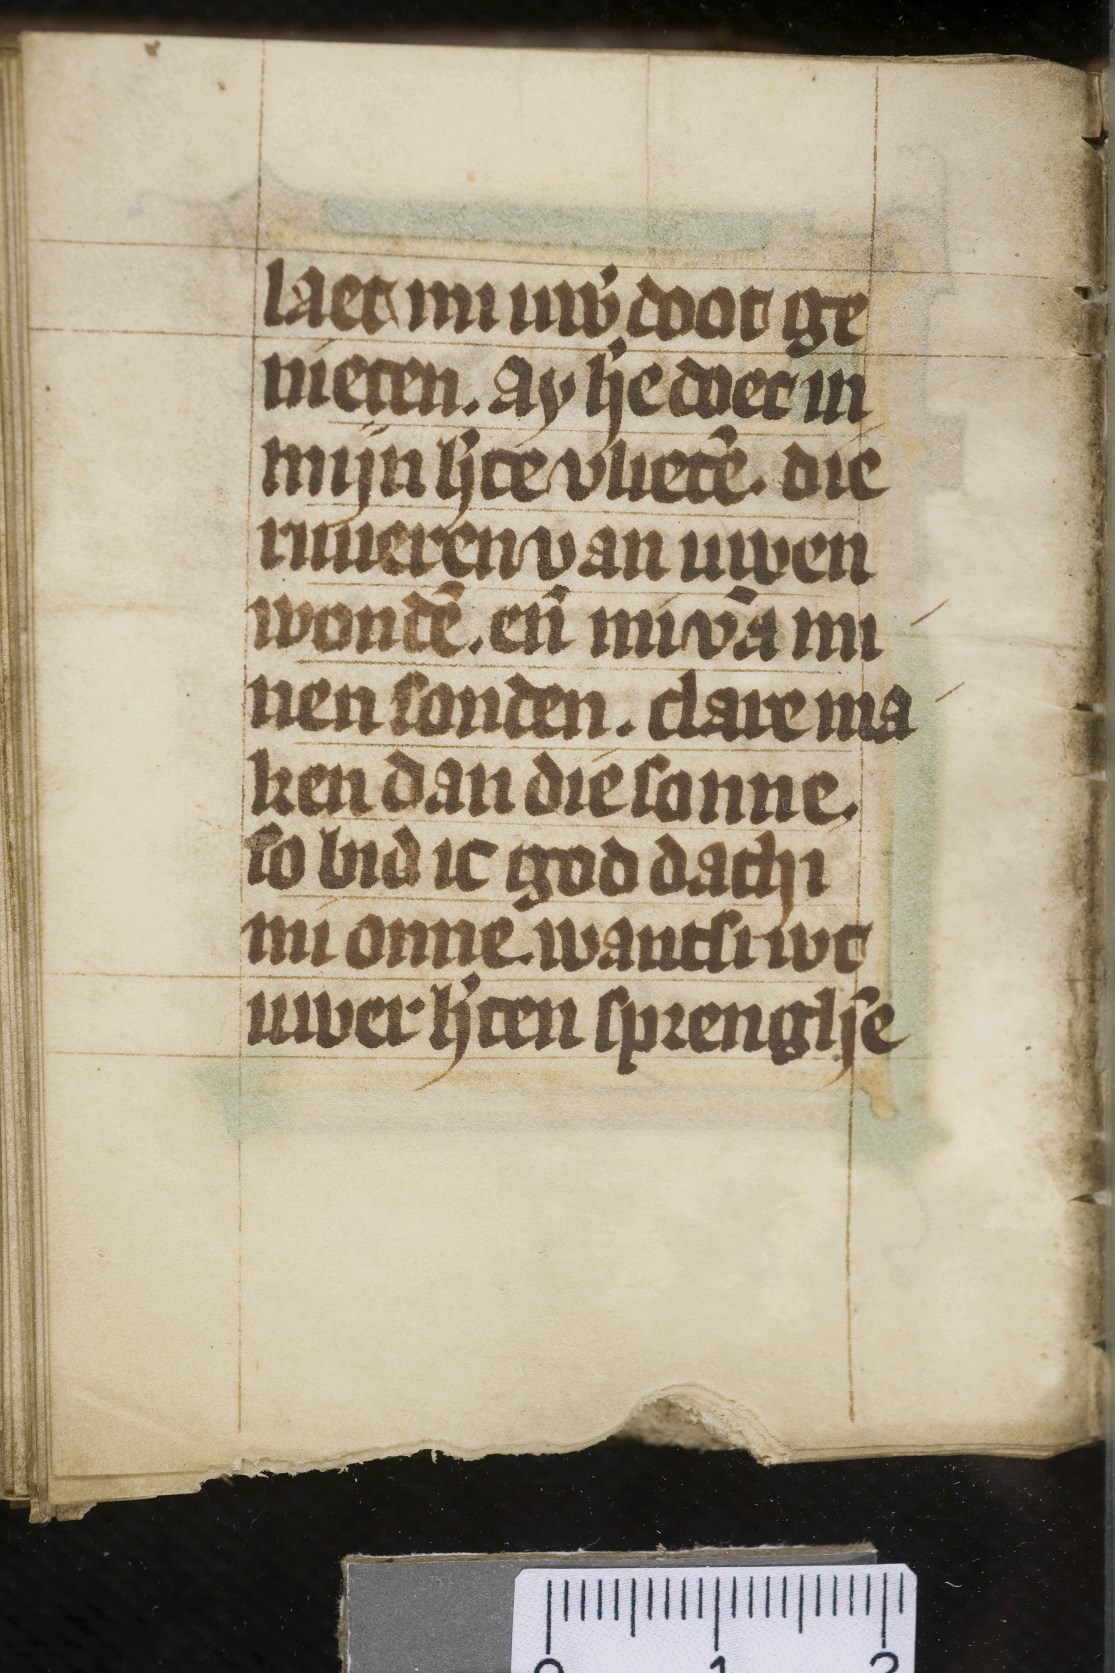 laet mi uw̉ doot ge
nieten. Ay h̓e doet in
mijn h̓te vlietē. die
riuieren van uwen
wondē. en̄ mi vā mi
nen sonden. clare ma
ken dan die sonne.
so bid ic god dat hi
mi onne. want si wt
uwer h̓ten sprengh̓e
0 1 2